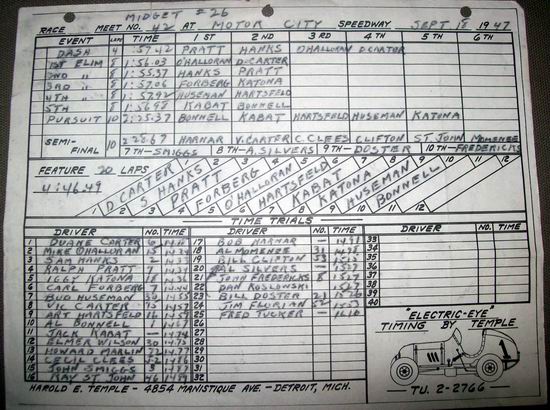 MIDGET #26
RACE MEET NO. 42 AT MOTOR CITY SPEEDWAY SEPT 18 1947
EVENT LAPS TIME 1ST 2ND 3RD 4TH 5TH 6TH
DASH 4 1:57.42 PRATT HANKS O'HALLORAN D.CARTER
1ST ELIM 8 1:56.03 O'HALLORAN D.CARTER
2ND " 8 1:55.37 HANKS PRATT
3RD " 8 1:57.06 FORBERG KATONA
4TH " 8 1:57.92 HUSEMAN HARTSFELD
5TH 8 1:56.98 KABAT BONNELL
PURSUIT 2:25.37 BONNELL KABAT HARTSFELD HUSEMAN KATONA
SEMI-FINAL 10 2:28.67 HARNAR V.CARTER C.CLEES CLIFTON ST JOHN MOMENEE
7TH-SMIGGS 8TH-A.SILVERS 9TH-DOSTER 10TH-FREDERICKS
FEATURE 20 LAPS
4:46.49
D CARTER
S HANKS
PRATT
FORBERG
O'HALLORAN
HARTSFELD
KABAT
KATONA
HUSEMAN
BONNELL
1 2 3 4 5 6 7 8 9 10 11 12
TIME TRIALS
DRIVER NO. TIME DRIVER NO. TIME DRIVER NO. TIME
1 DUANE CARTER 6 17 BOB HARNAR - 33
2 MIKE O'HALLORAN 18 AL MOMENEE 34
3 SAM HANKS 19 BILL CLIFTON 35
4 RALPH PRATT 20 AL SILVERS 36
5 IGGY KATONA 21 JOHN FREDERICKS 37
6 CARL FORBERG 22 DAN KOSLOWSKI 38
7 BUD HUSEMAN 23 BILL DOSTER 39
8 V. CARTER 24 JIM FLORIAN 40
9 ART HARTSFELD 25 FRED TUCKER
10 AL BONNELL 26
11 JACK KABAT 27
12 ELMER WILSON 28
13 HOWARD MARLIN 29
14 CECIL CLEES 30
15 JOHN SMIGGS 31
16 RAY ST JOHN 32
"ELECTRIC-EYE"
TIMING BY TEMPLE
HAROLD E. TEMPLE - 4854 MANISTIQUE AVE. - DETROIT, MICH. TU. 2-2766